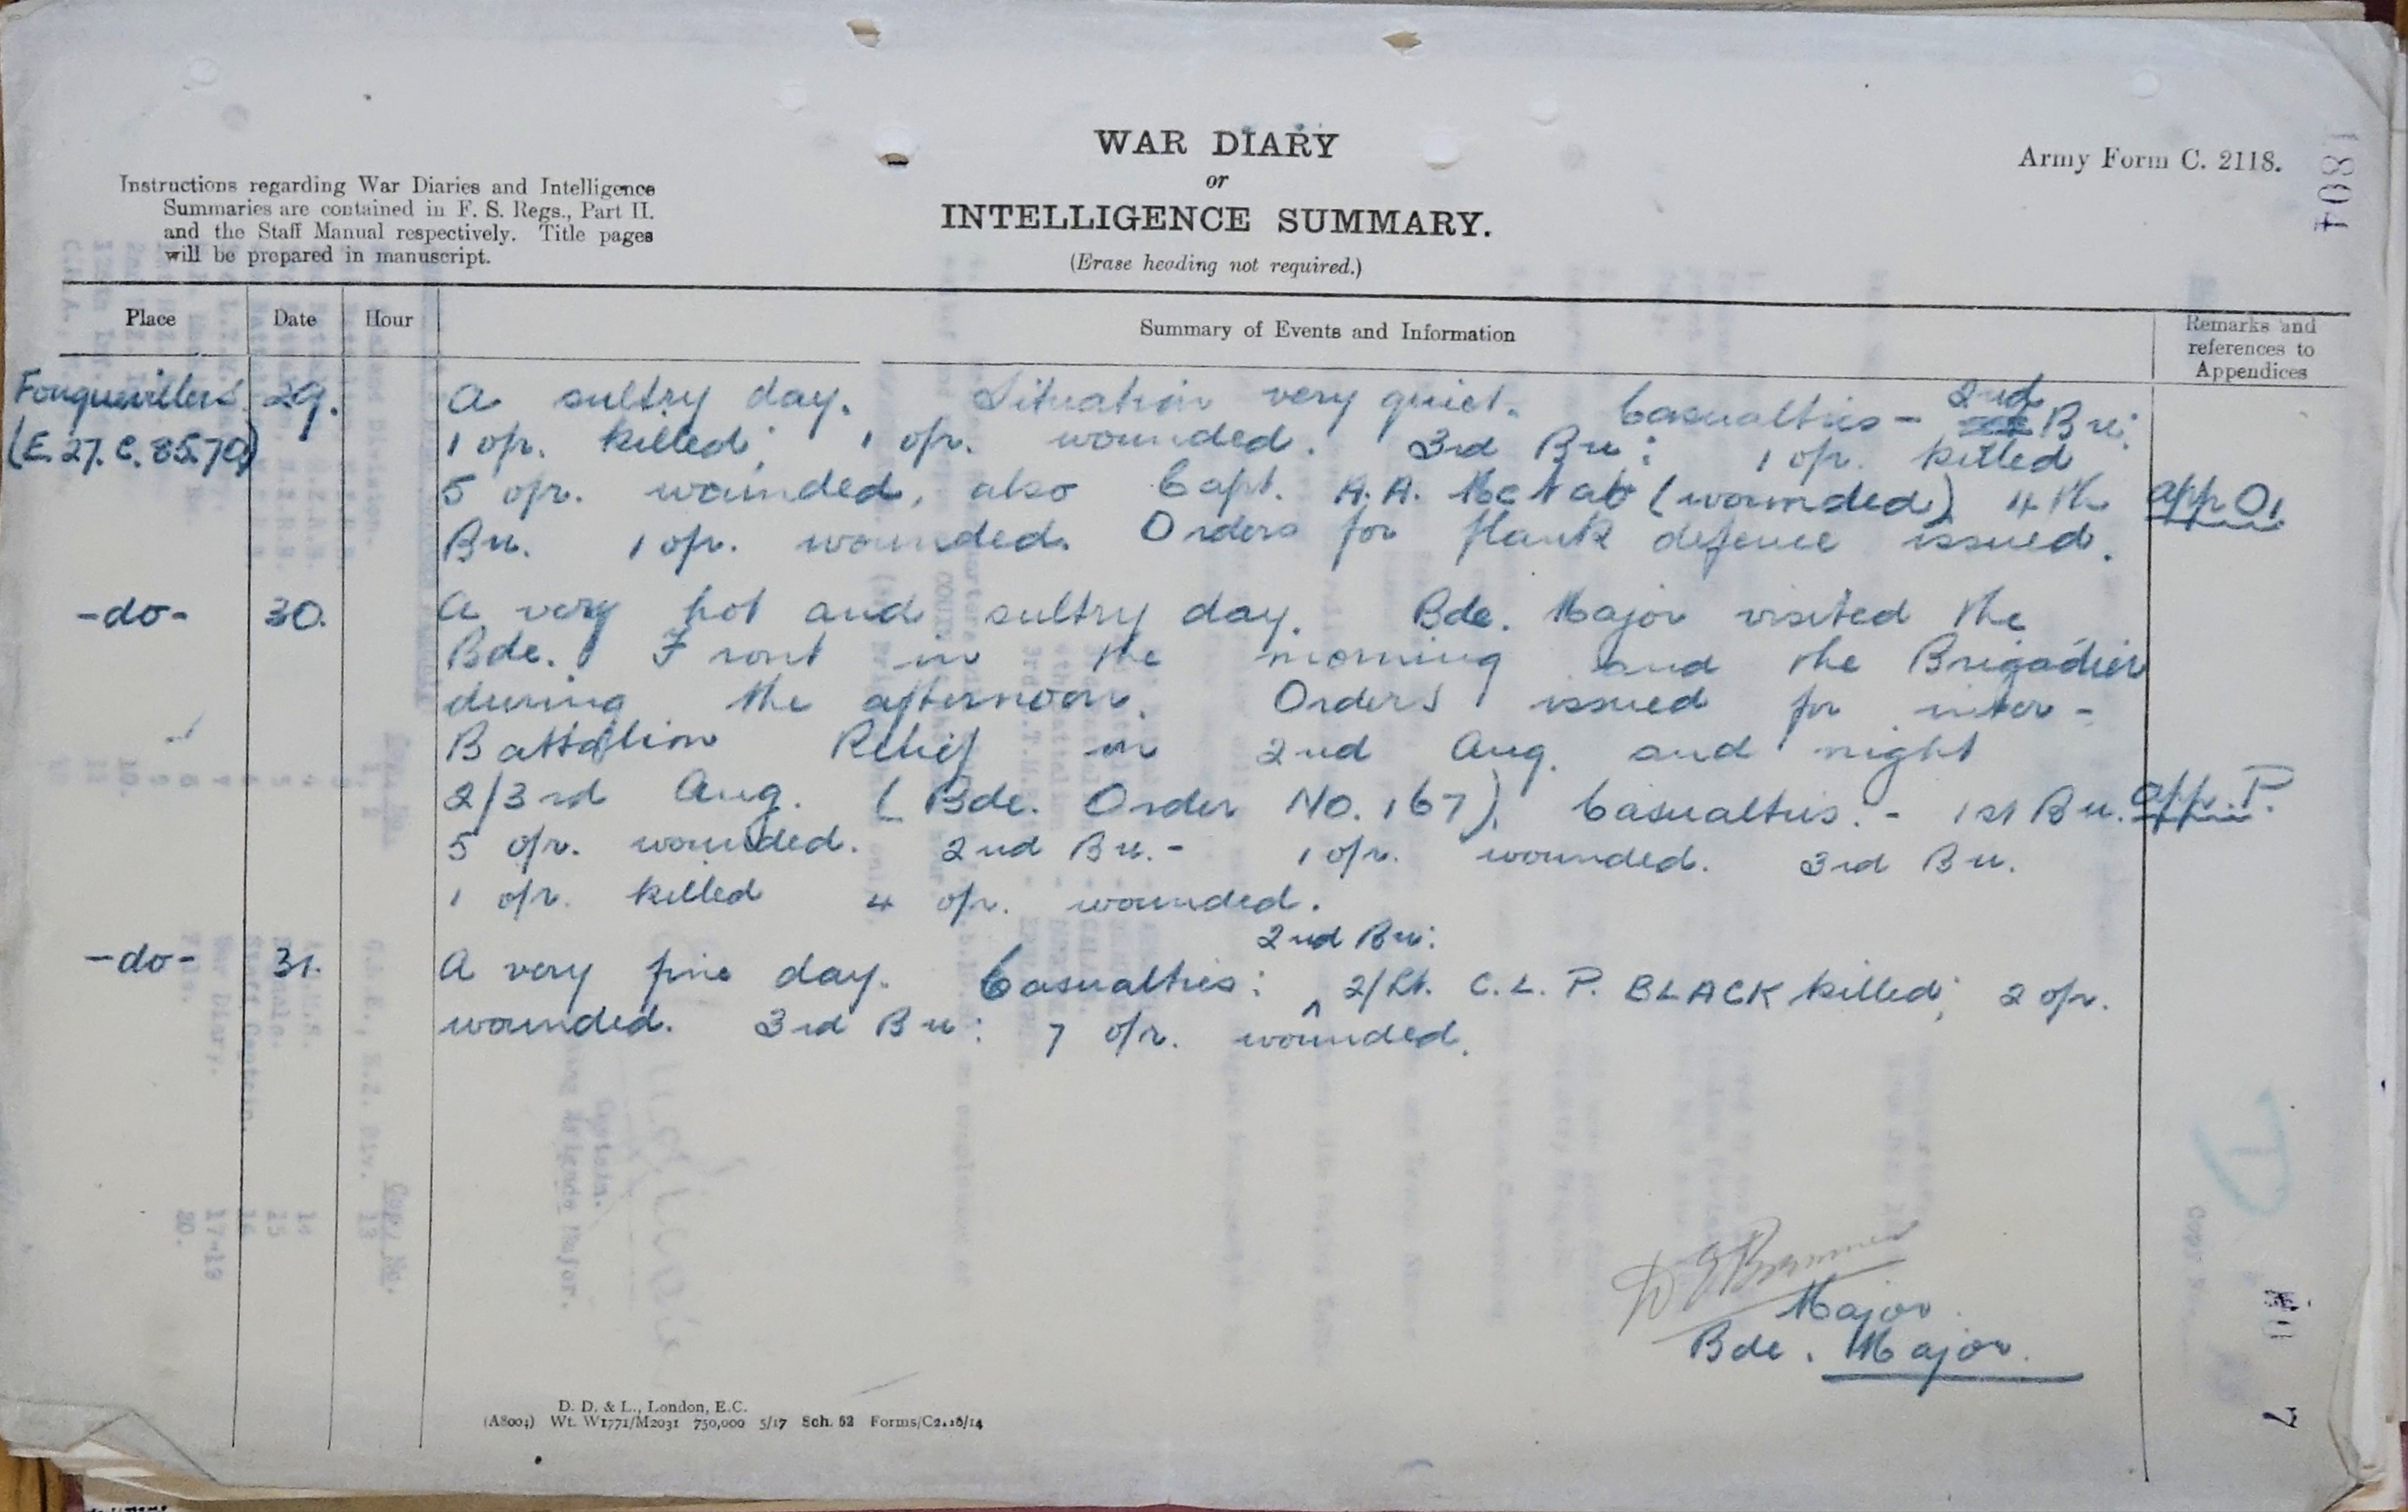 WAR DIARY
or
INTELLIGENCE SUMMARY.
(Erase heading not required.)
Army Form C. 2118.
1804
Instructions regarding War Diaries and Intelligence
Summaries are contained in F. S. Regs., Part II.
and the Staff Manual respectively. Title pages
will be prepared in manuscript.
Place Date Hour Summary of Events and Information Remarks and
references to
Appendices
Fonquevillers 29. A sultry day. Situation very quiet. Casualties - 2nd Bn:
(E.27.C.85.70) 1 o/r. killed; 1 o/r. wounded. 3rd Bn: 1 o/r. killed
5 o/r. wounded, also Capt. A.A. McNab (wounded) 4th app O1
Bn. 1 o/r. wounded. Orders for flank defence issued.
-do- 30. A very hot and sultry day. Bde. Major visited the
Bde. Front in the morning and the Brigadier
during the afternoon. Orders issued for inter-
Battalion Relief on 2nd Aug. and night
2/3rd Aug. (Bde. Order No. 167). Casualties. - 1st Bn. app. P.
5 o/r. wounded. 2nd Bn. - 1 o/r. wounded. 3rd Bn.
1 o/r. killed 4 o/r. wounded.
2nd Bn:
-do- 31. A very fine day. Casualties: ^ 2/Lt. C.L.P. BLACK killed; 2 o/r.
wounded. 3rd Bn: 7 o/r. wounded.
Major
Bde. Major.
D. D. & L., London, E.C.
(A8004) Wt. W1771/M2031 750,000 5/17 Sch. 52 Forms/C2118/14